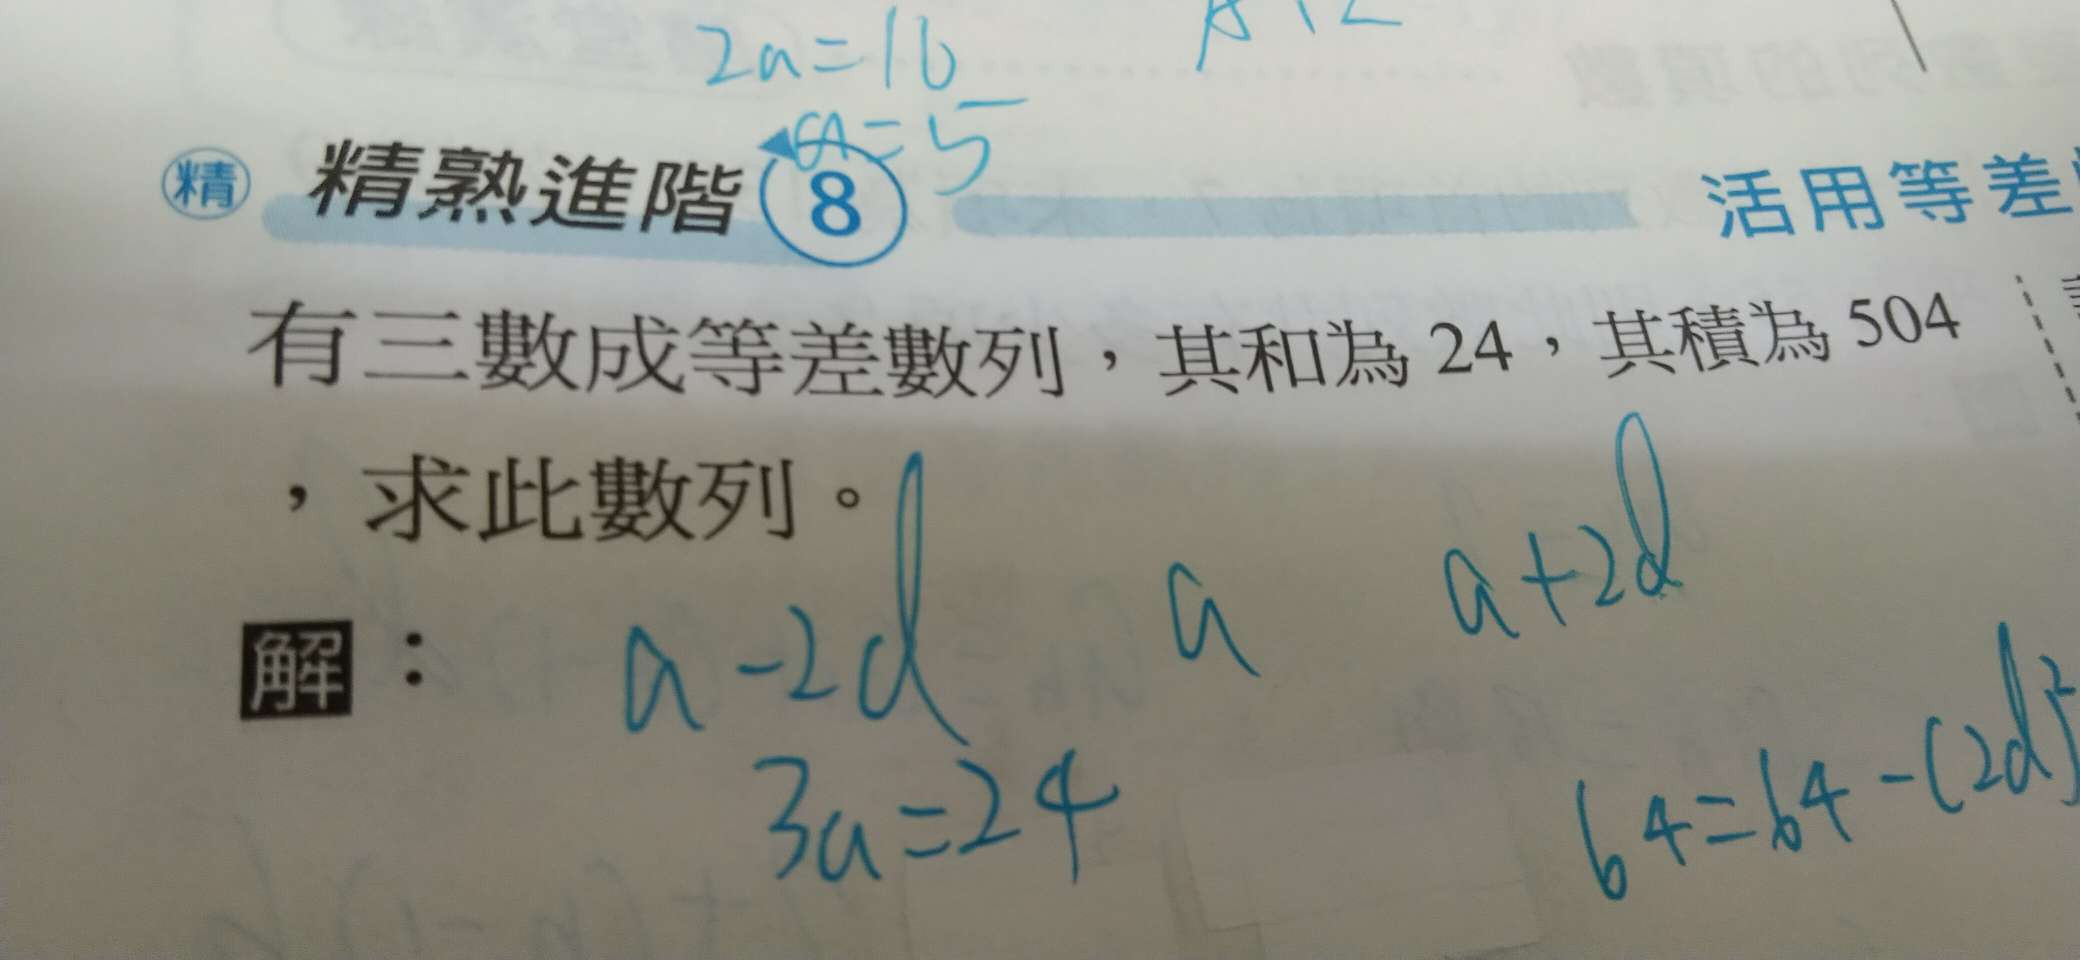 2a=10
a=5
精 精熟進階 8 活用等差
有三數成等差數列，其和為 24，其積為 504
，求此數列。
解： a-2d a a+2d
3a=24
64=64-(2d)²